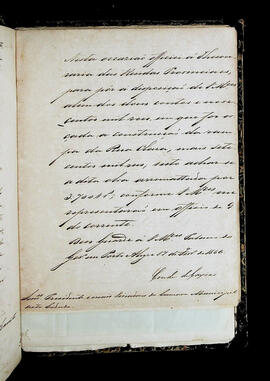 Nesta occasião officio á Thesou-
raria das Rendas Provinciaes,
para pôr a disposição de VMces
alem dos dous contos e nove
centos mil reis em que foi or
çada a construcção da ram
pa da Rua Clara, mais sete
centos mil reis, visto achar-se
a dita obra arrematada por
3,700$, conforme VMces me
representarão em officio de 9
do corrente.
Deos Guarde a VMces Palacio do
Gov em Porto Alegre 17 de de 1846
Conde de Caxias
Snrs Presidente e mais Vereadores da Camara Municipal
desta Cidade